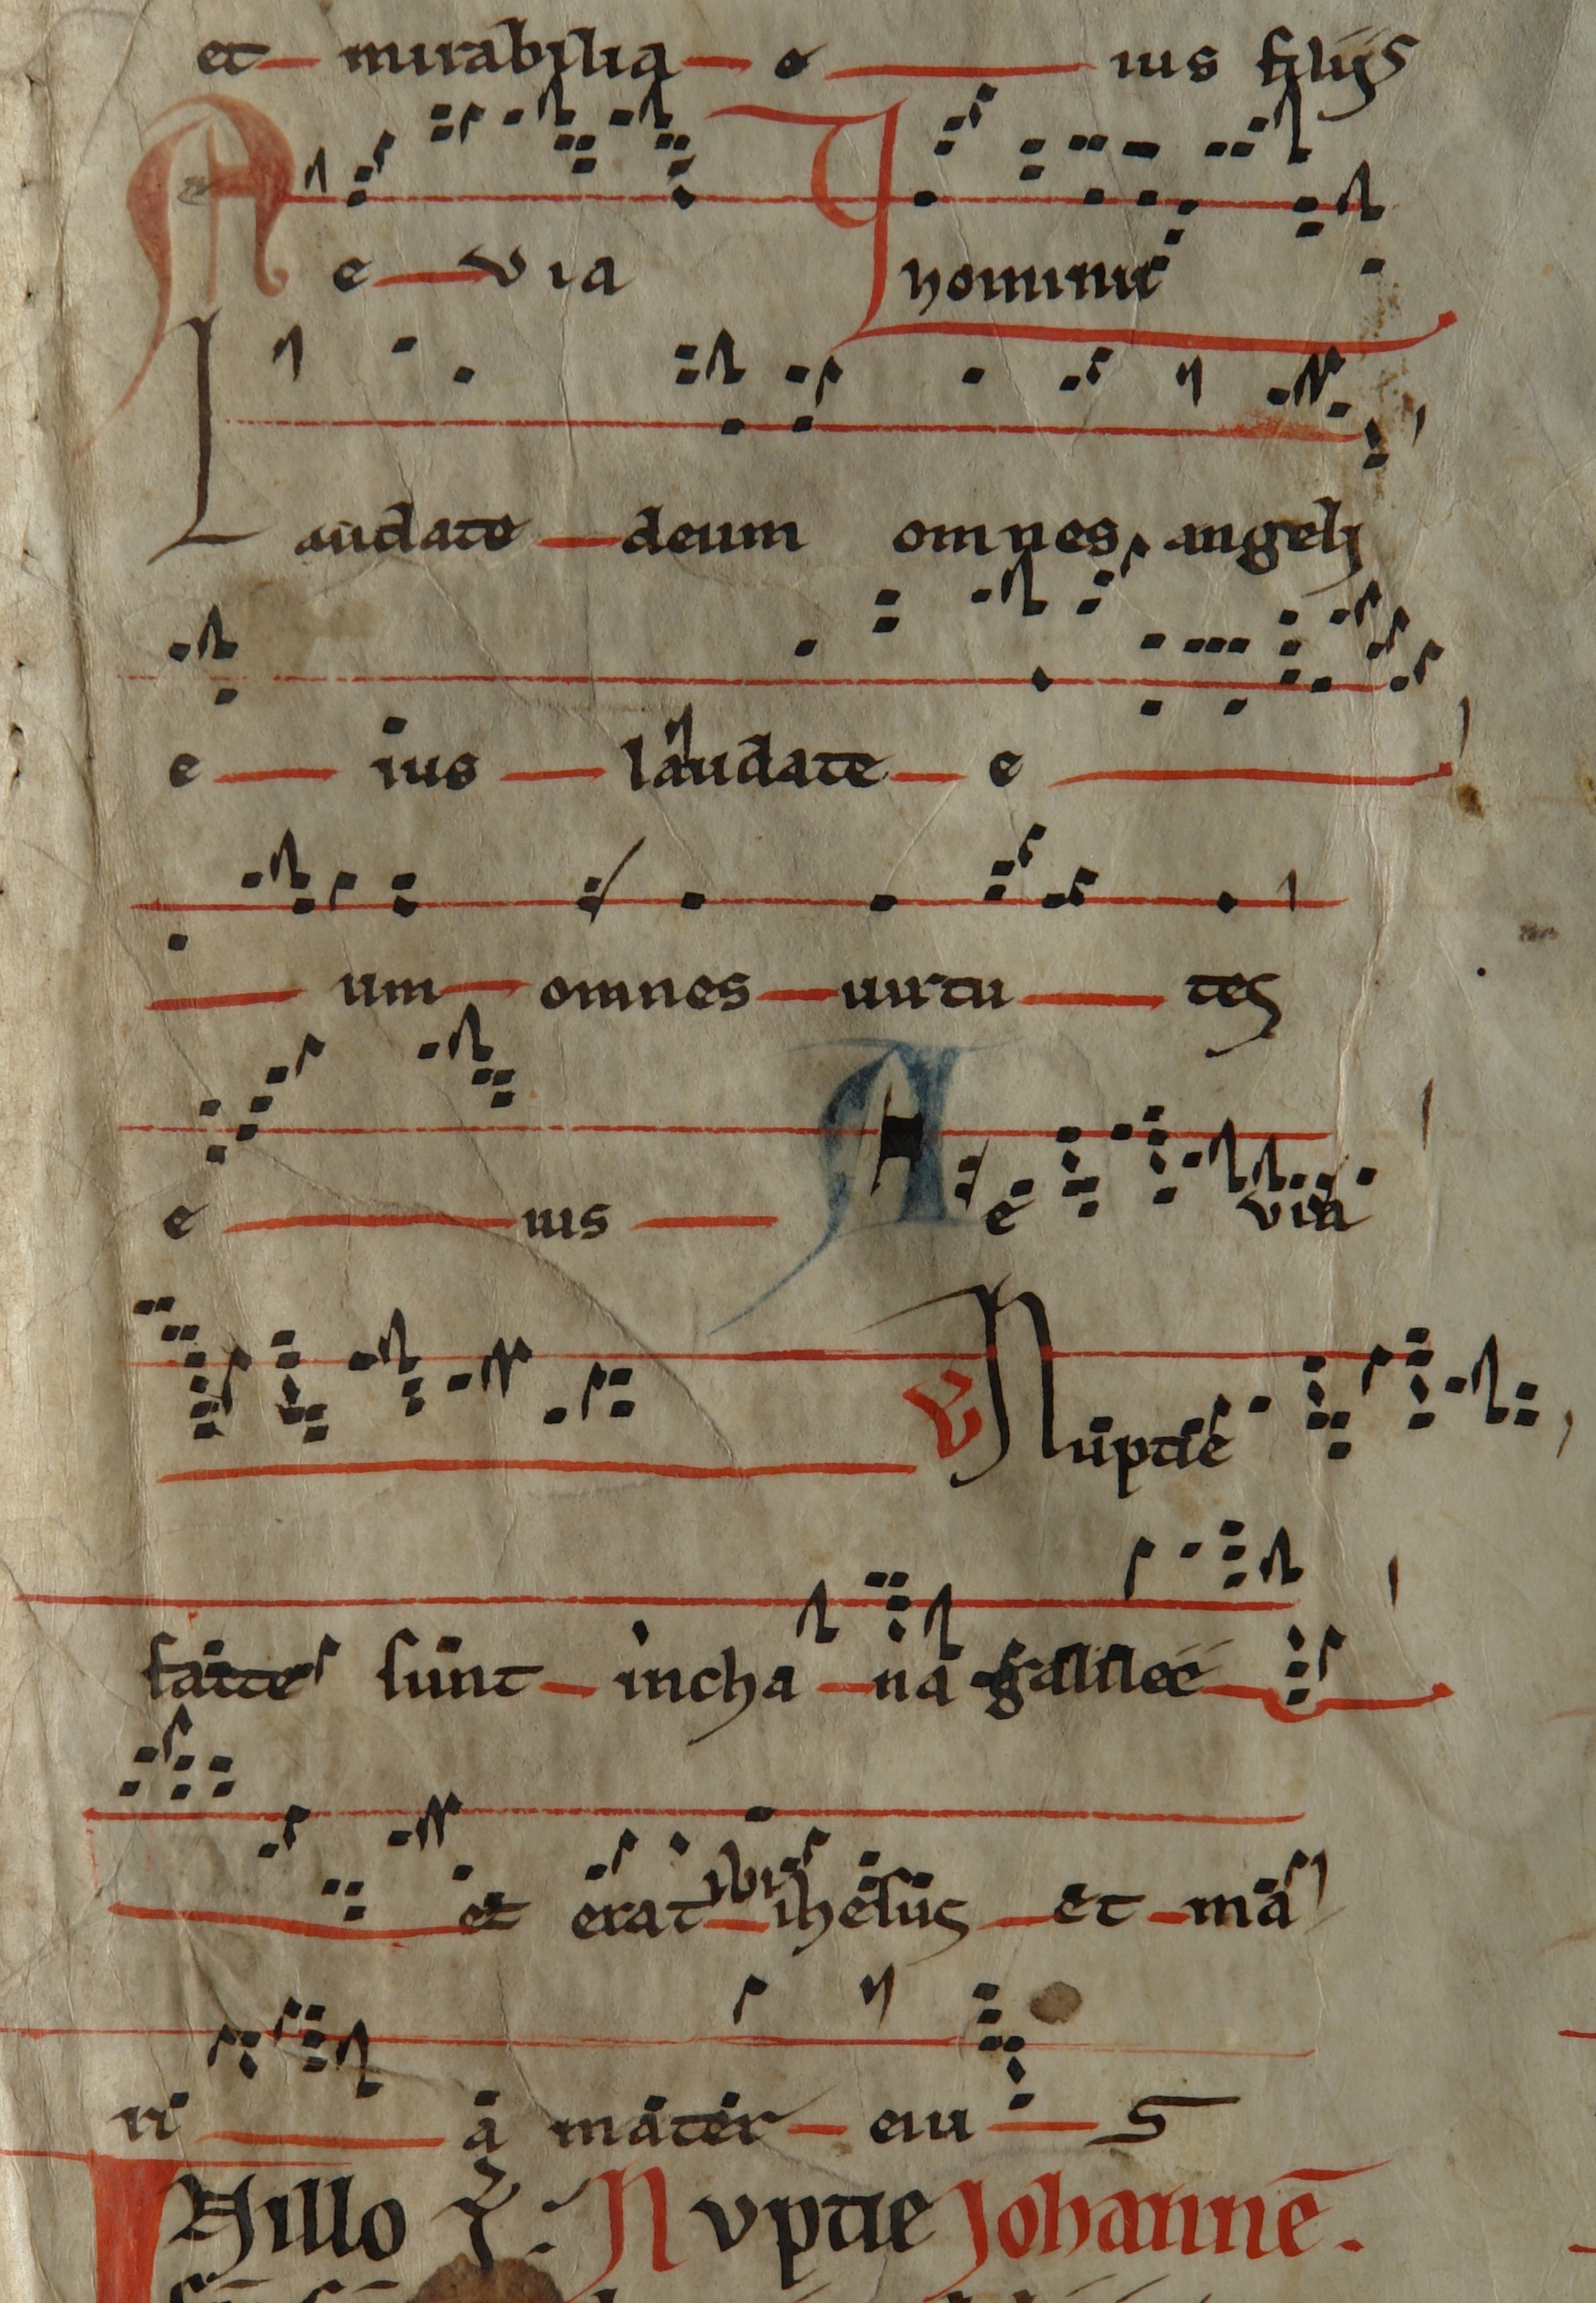 et mirabilia e ius filijs
A e v ia hominu
Laudate deum omnes angeli
e ius laudate e
um omnes uirtu tes
e ius A e via
V Nuptie
facte sunt in cha na galilee
et erat ibi ihesus et ma
ri a mater eiu s
IN illo T: Nvptie Johanne.